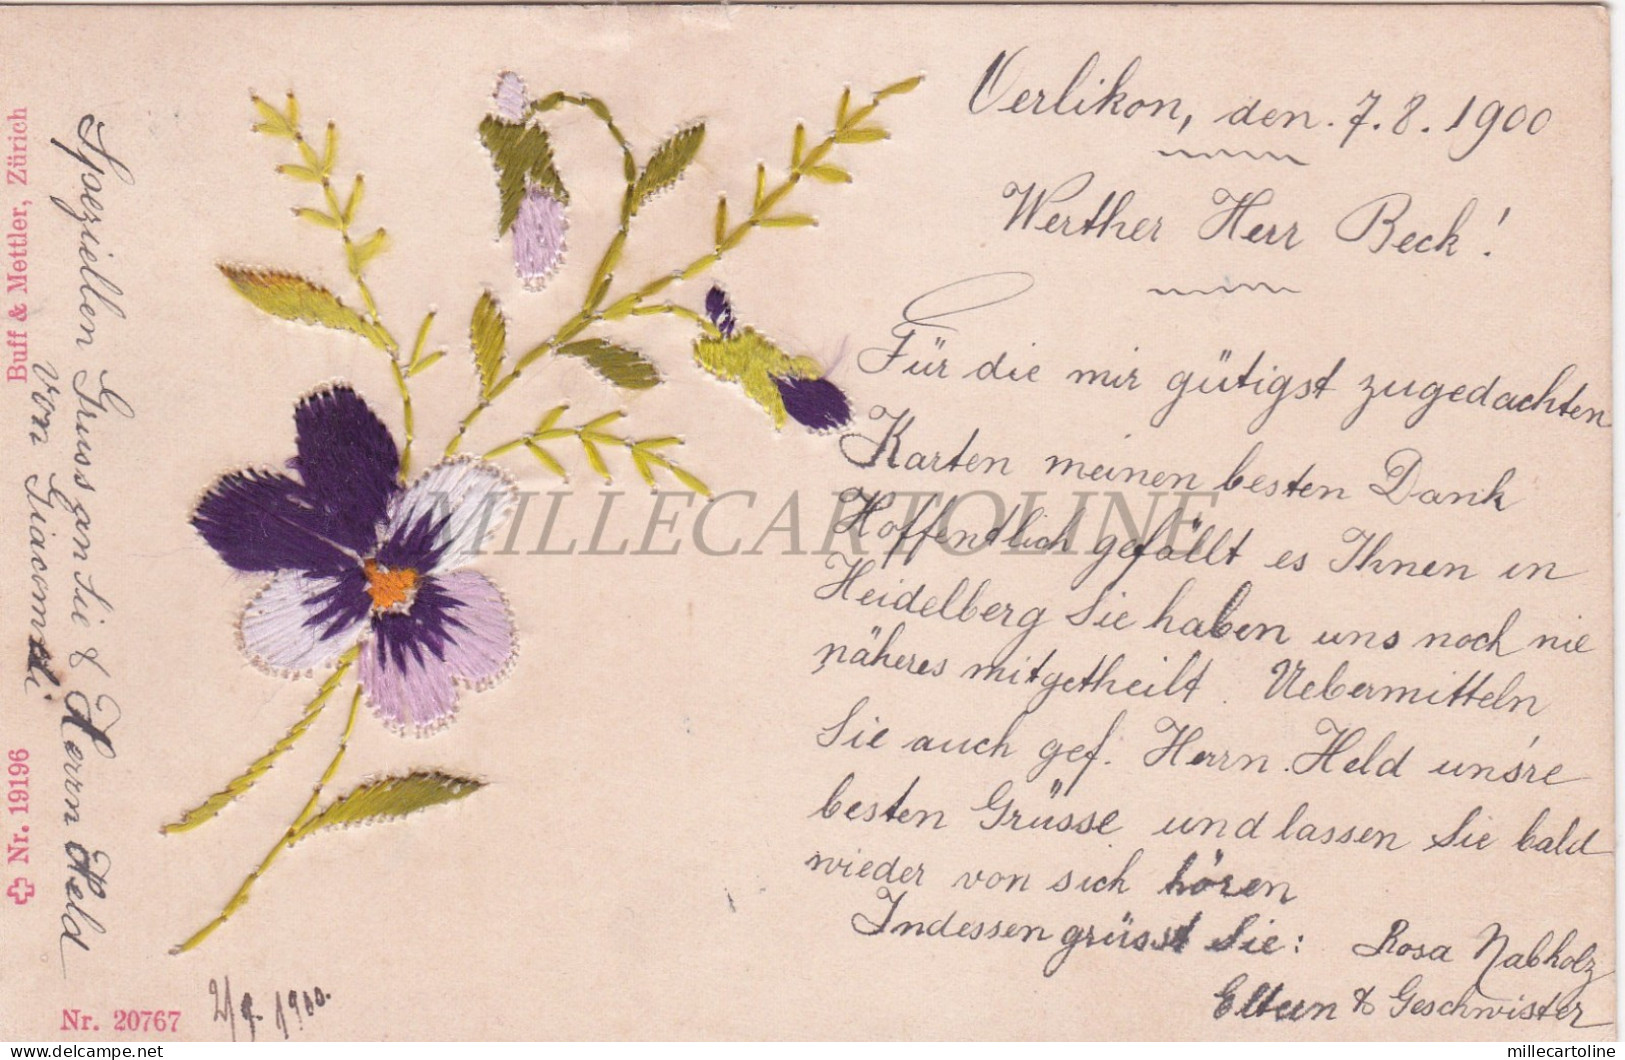 Oerlikon, den. 7. 8. 1900
Werther Herr Beck!
Für die mir gütigst zugedachten
Karten meinen besten Dank
Hoffendlich gefällt es Ihnen in
Heidelberg Sie haben uns noch nie
näheres mitgetheilt. Uebermitteln
Sie auch gef. Herrn. Held uns're
besten Grüsse und lassen Sie bald
wieder von sich hören
Indessen grüsst Sie: Rosa Nabholz
Eltern & Geschwister
Spoeziellen Gruss an Sie & Herrn Held
von
Buff & Mettler, Zürich
Nr. 19196
Nr. 20767
1900.
MILLECARTOLINE
delcampe.net
millecartoline